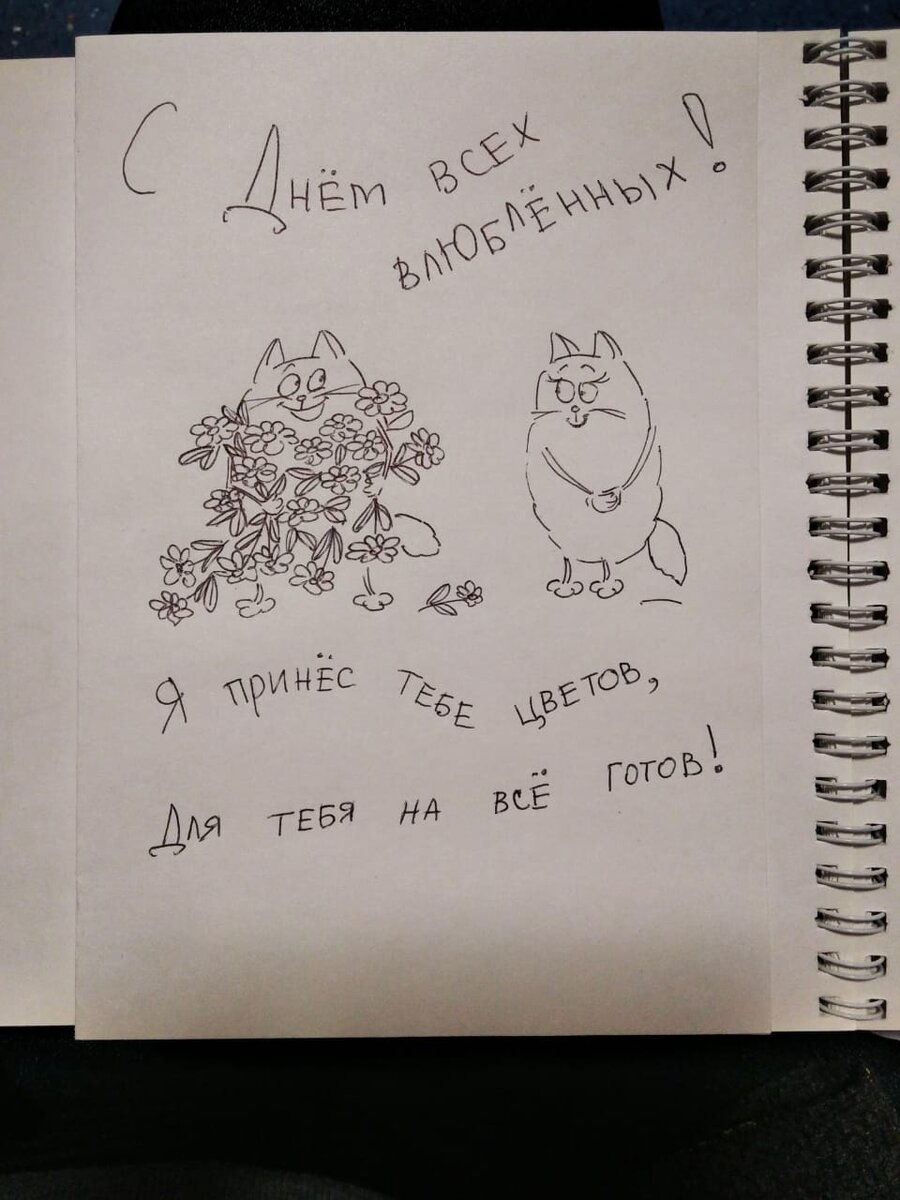 С Днём всех
влюблённых!
Я принёс тебе цветов,
Для тебя на всё готов!